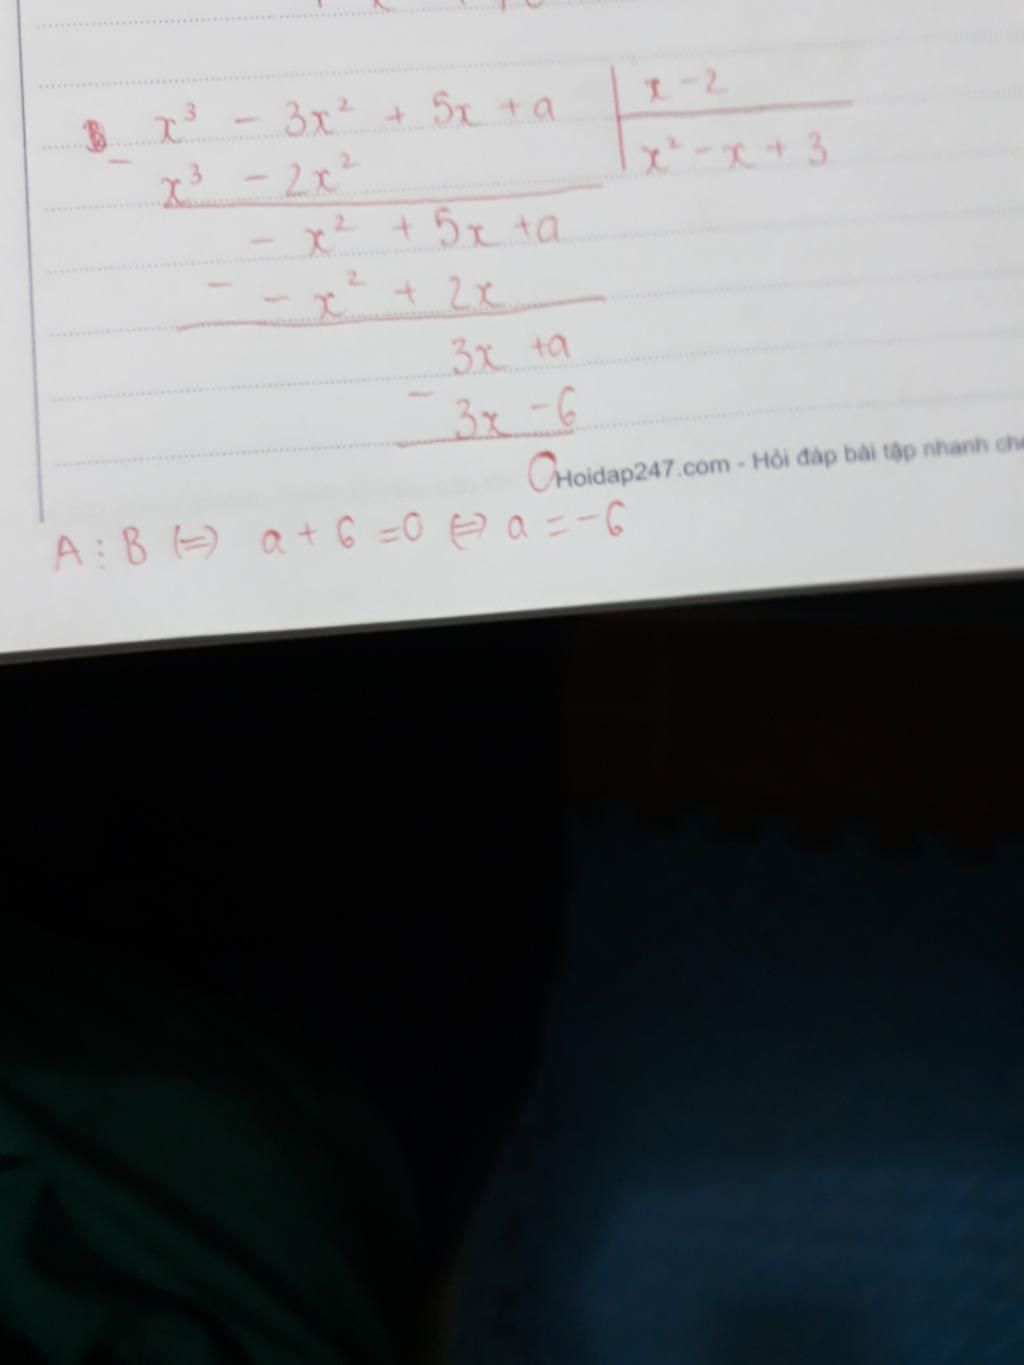 x³ - 3x² + 5x + a | x - 2
- x³ - 2x² | x² - x + 3
- x² + 5x + a
- - x² + 2x
3x + a
- 3x - 6
0
Hoidap247.com - Hỏi đáp bài tập nhanh
A ⋮ B ⇔ a + 6 = 0 ⇔ a = -6